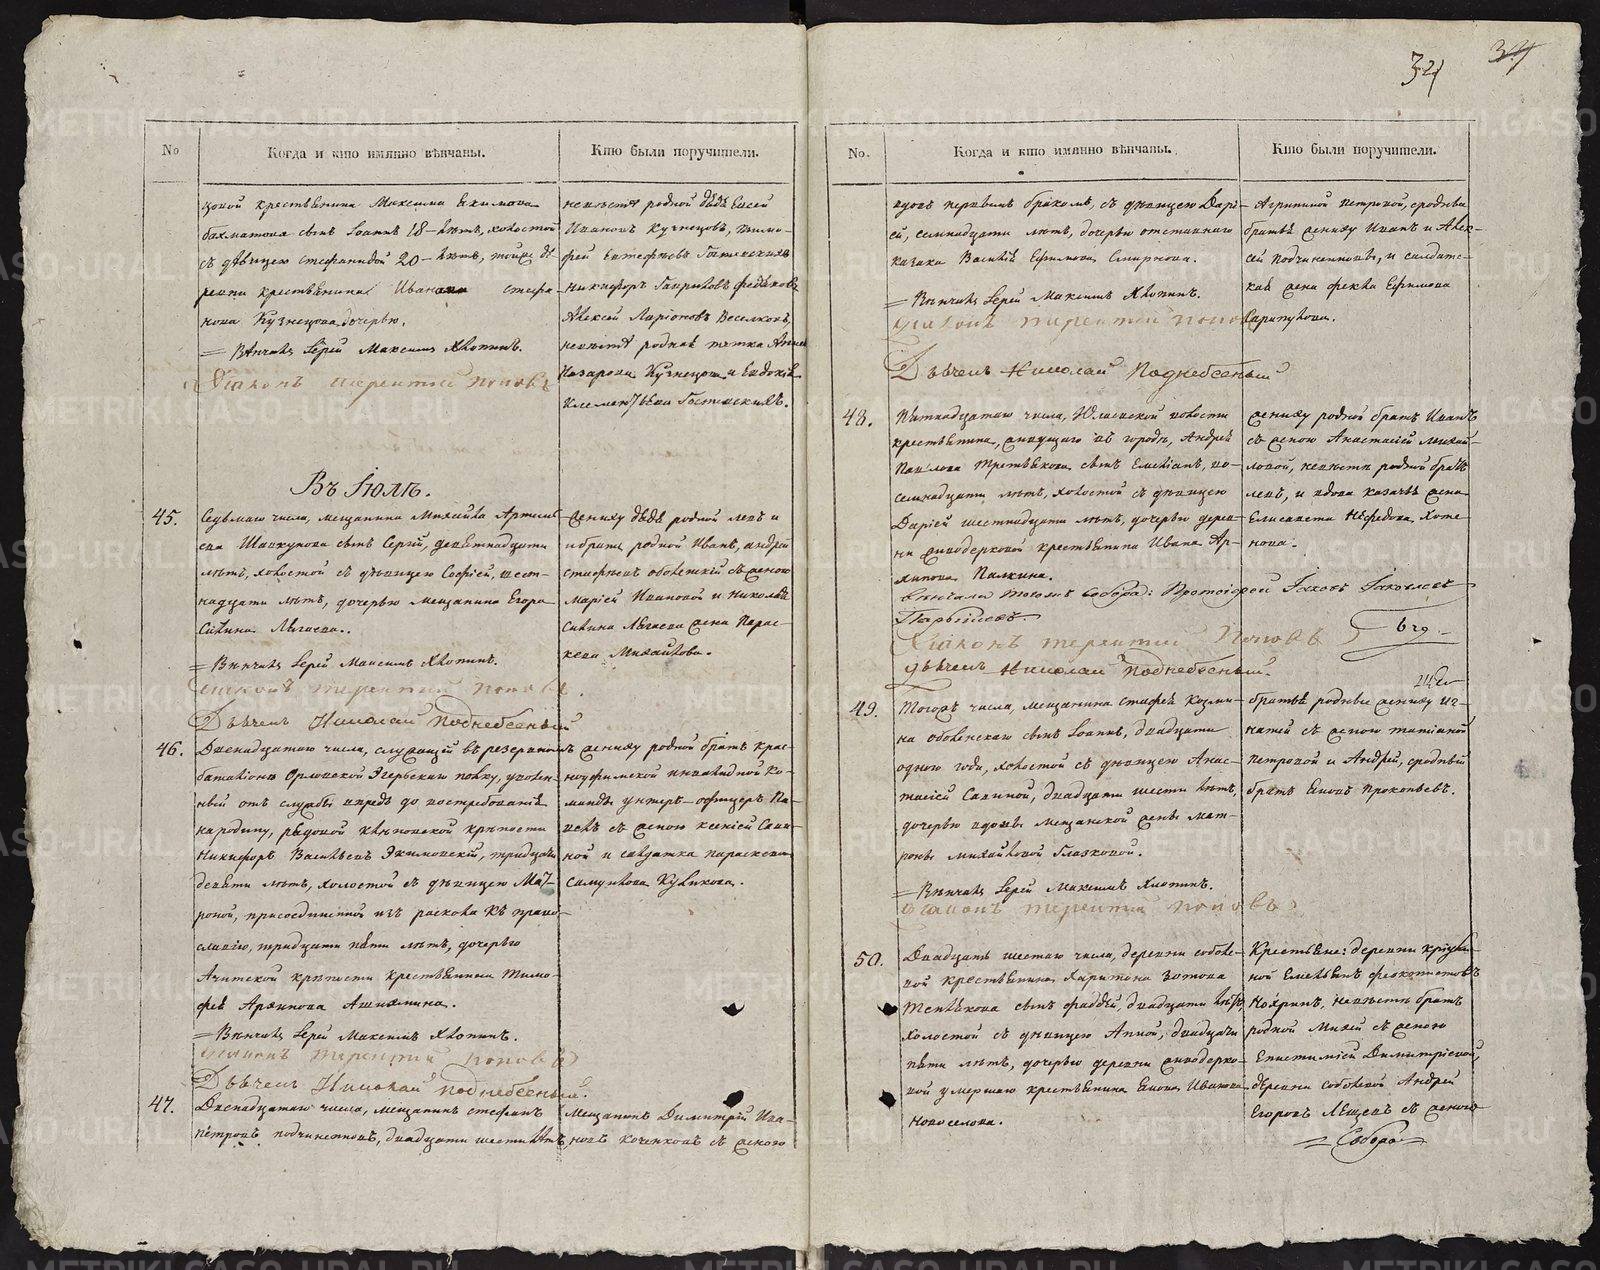 34
34
No
Когда и кто имянно вѣнчаны.
Кто были поручители.
цовой крестьянина Максима Екимова
Бахматова сынъ Іоаннъ 18-лѣтъ, холостой
съ дѣвицею Стефанидой 20-лѣтъ, тойже де-
ревни крестьянина Ивана Стефа-
нова Кузнецова дочерью.
Вѣнчалъ Іерей Максимъ Хлопинъ.
Діаконъ Терентий Поповъ
невѣстѣ родной дѣдъ Евсей
Ивановъ Кузнецовъ, Тимо-
фей Евтефѣевъ
Никифоръ Гавриловъ
Алексѣй Ларіоновъ Веселковъ,
невѣстѣ родная тетка Анна
Назарова Кузнецова и Евдокія
Клементьева
Въ Іюлѣ.
45.
Седьмаго числа, мещанина Михаила Артемье-
ва Шавкунова сынъ Сергій, девятнадцати
лѣтъ, холостой съ дѣвицею Софіей, шест-
надцати лѣтъ, дочерью мещанина Егора
Силина Лѣгаева.
Вѣнчалъ Іерей Максимъ Хлопинъ.
Діаконъ Терентий Поповъ.
Дьячекъ Николай Поднебесный
жениху дѣдъ родной Левъ и
и братъ родной Иванъ, Андрей
Стефѣевъ съ женою
Марьей Ивановой и Николай
Силина Лѣгаева жена Парас-
кева Михайлова.
46.
Двенадцатаго числа, служащій въ резервномъ
баталіонѣ Орловскаго Эгерьскаго полку, уволен-
ный отъ службы впредь до востребованія
на родину, рядовой крѣпости
Никифоръ Васильевъ Якимовскій, тридцати
девяти лѣтъ, холостой съ дѣвицею Мат-
роной, присоединенной изъ раскола къ право-
славію, тридцати пяти лѣтъ, дочерью
Ачитской крѣпости крестьянина Тимо-
фея
Вѣнчалъ Іерей Максимъ Хлопинъ.
Діаконъ Терентий Поповъ
Дьячекъ Николай Поднебесный.
жениху родной братъ Крас-
ноуфимской инвалидной ко-
манды унтеръ-офицеръ Па-
велъ съ женою Ксенией Сави-
ной и солдатка Параскева
Самуилова Куликова.
47.
Двенадцатаго числа, мещанинъ Стефанъ
Петровъ Подчиненновъ, двадцати шести лѣтъ
Мещанинъ Димитрій Ива-
новъ съ женою
No.
Когда и кто имянно вѣнчаны.
Кто были поручители.
вдовъ первымъ бракомъ, съ дѣвицею Дарь-
ей, семнадцати лѣтъ, дочерью отставнаго
казака Василья Ефимова Смирнова.
Вѣнчалъ Іерей Максимъ Хлопинъ.
Діаконъ Терентий Поповъ
Дьячекъ Николай Поднебесный
Агрипиной Петровой, сродные
братья жениху Иванъ и Алек-
сѣй Подчиненновы, и солдатс-
кая жена Фекла Ефимова
48.
Пятнадцатаго числа, волости
крестьянина, живущаго въ городѣ, Андрея
Павлова Третьякова сынъ Емельянъ, во-
семнадцати лѣтъ, холостой съ дѣвицею
Дарьей шестнадцати лѣтъ, дочерью дерев-
ни крестьянина Ивана Ар-
хипова Палкина.
вѣнчалъ тогожъ собора: Протоіерей Іаковъ Іаковлевъ
Діаконъ Терентий Поповъ
дьячекъ Николай Поднебесный.
жениху родной братъ Иванъ
съ женою Анастасіей Михай-
ловой, невѣстѣ родной братъ
Левъ, и вдова казачья жена
Елисавета Нефедова Хоте-
нова.
49.
Тогожъ числа, мещанина Стефея Козми-
на сынъ Іоаннъ, двадцати
одного года, холостой съ дѣвицею Анас-
тасіей Савиной, двадцати шести лѣтъ,
дочерью вдовы мещанской жены Мат-
роны Михайловой Глазковой.
Вѣнчалъ Іерей Максимъ Хлопинъ.
Діаконъ Терентий Поповъ
братья родные жениху Иг-
натей съ женою Татіаной
Петровой и Андрей, сродный
братъ Прокопьевъ.
50.
Двадцать шестаго числа, деревни Соболе-
вой крестьянина Харитона Зотова
сынъ Фаддей, двадцати лѣтъ,
холостой съ дѣвицею Анной, двадцати
пяти лѣтъ, дочерью деревни
вой умершаго крестьянина Иванова
Новоселова.
Крестьяне: деревни
ной Емельянъ Феоктистовъ
невѣстѣ братъ
родной Михей съ женою
Епистиміей Димитріевой,
деревни Соболевой Андрей
Егоровъ Лещевъ съ женою
Собора